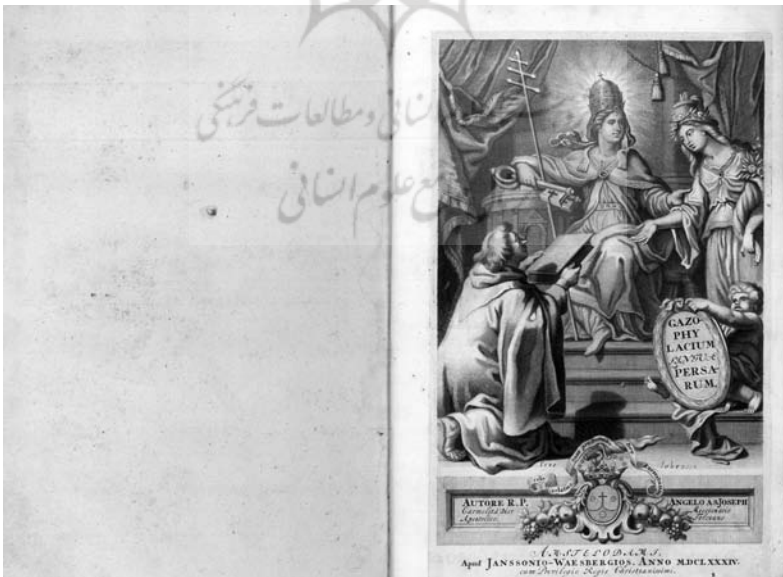 انسانی و مطالعات فرهنگی
جامع علوم انسانی
GAZO-
PHY
LACIUM
LINGUÆ
PERSA-
RUM.
AUTORE R.P. ANGELO A S. JOSEPH
Apostolico
AMSTELODAMI,
Apud JANSSONIO-WAESBERGIOS, ANNO MDCLXXXIV.
cum Privilegio Regis Christianissimi.